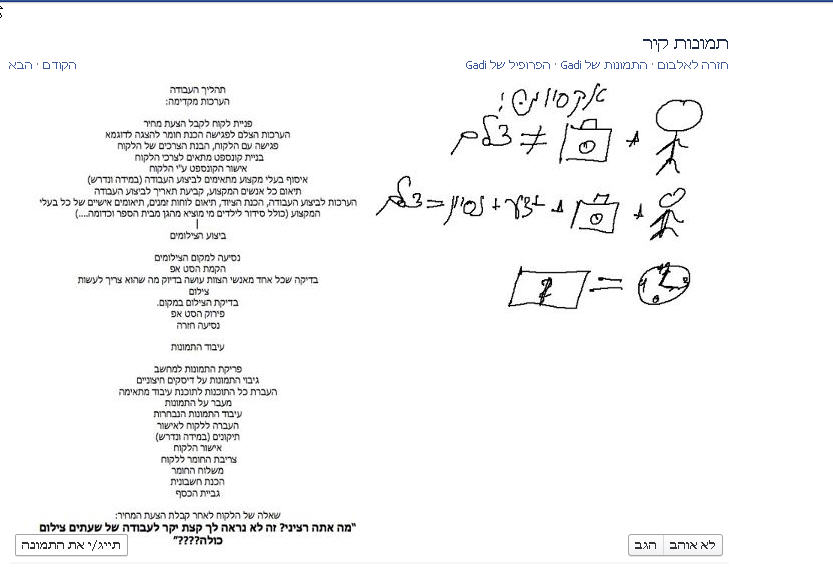 תמונות קיר
חזרה לאלבום · התמונות של Gadi · הפרופיל של Gadi
הקודם · הבא
אקסיומה:
+ ≠ צלם
+ + ידע + נסיון = צלם
=
תהליך העבודה
הערכות מקדימה:
פניית לקוח לקבל הצעת מחיר
הערכות הצלם לפגישה הכנת חומר להצגה לדוגמא
פגישה עם הלקוח, הבנת הצרכים של הלקוח
בניית קונספט מתאים לצרכי הלקוח
אישור הקונספט ע"י הלקוח
איסוף בעלי מקצוע מתאימים לביצוע העבודה (במידה ונדרש)
תיאום כל אנשים המקצוע, קביעת תאריך לביצוע העבודה
הערכות לביצוע העבודה, הכנת הציוד, תיאום לוחות זמנים, תיאומים אישיים של כל בעלי
המקצוע (כולל סידור לילדים מי מוציא מהגן מבית הספר וכדומה....)
ביצוע הצילומים
נסיעה למקום הצילומים
הקמת הסט אפ
בדיקה שכל אחד מאנשי הצוות עושה בדיוק מה שהוא צריך לעשות
צילום
בדיקת הצילום במקום.
פירוק הסט אפ
נסיעה חזרה
עיבוד התמונות
פריקת התמונות למחשב
גיבוי התמונות על דיסקים חיצוניים
העברת כל התוכנות לתוכנת עיבוד מתאימה
מעבר על התמונות
עיבוד התמונות הנבחרות
העברה ללקוח לאישור
תיקונים (במידה ונדרש)
אישור הלקוח
צריבת החומר ללקוח
משלוח החומר
הכנת חשבונית
גביית הכסף
שאלה של הלקוח לאחר קבלת הצעת המחיר:
"מה אתה רציני? זה לא נראה לך קצת יקר לעבודה של שעתים צילום
כולה????"
לא אוהב
הגב
תייג/י את התמונה